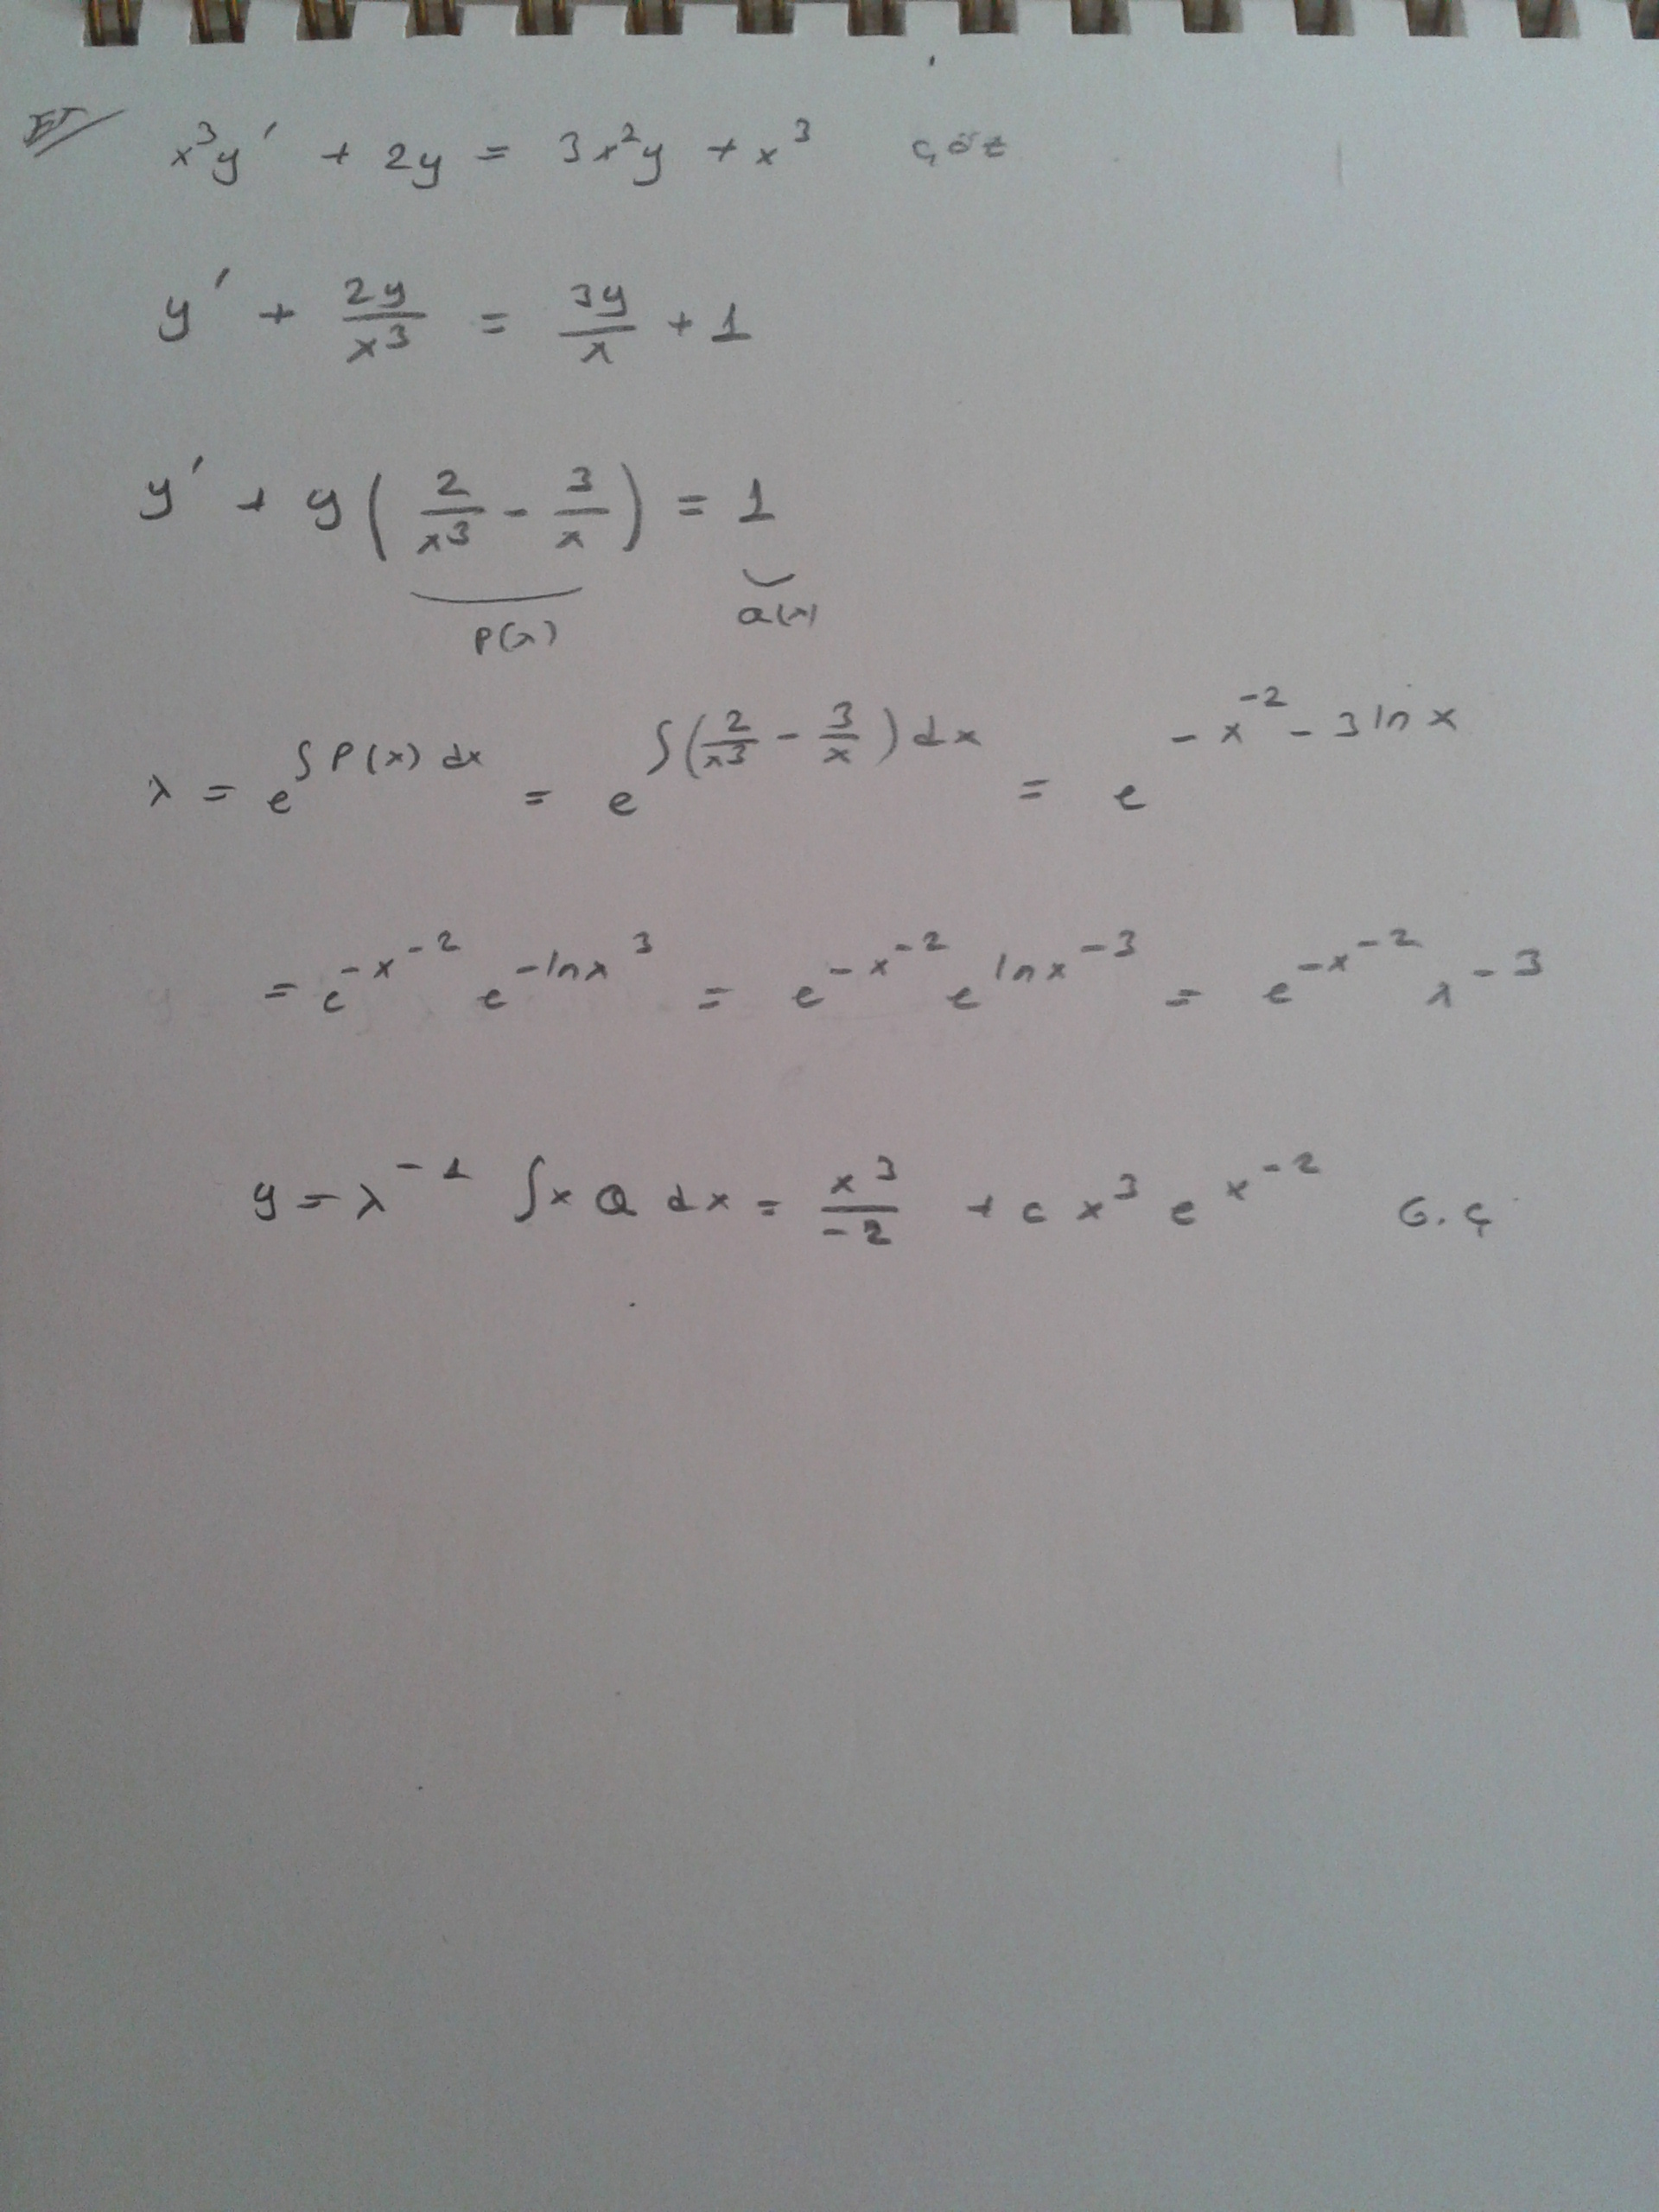 x³y' + 2y = 3x²y + x³ çöz
y' + 2y/x³ = 3y/x + 1
y' + y(2/x³ - 3/x) = 1
P(x) Q(x)
λ = e^∫P(x)dx = e^∫(2/x³ - 3/x)dx = e^(-x^-2 - 3lnx)
= e^-x^-2 e^-lnx³ = e^-x^-2 e^lnx^-3 = e^-x^-2 x^-3
y = λ^-1 ∫x Q dx = x³/-2 + c x³ e^x^-2 G.Ç